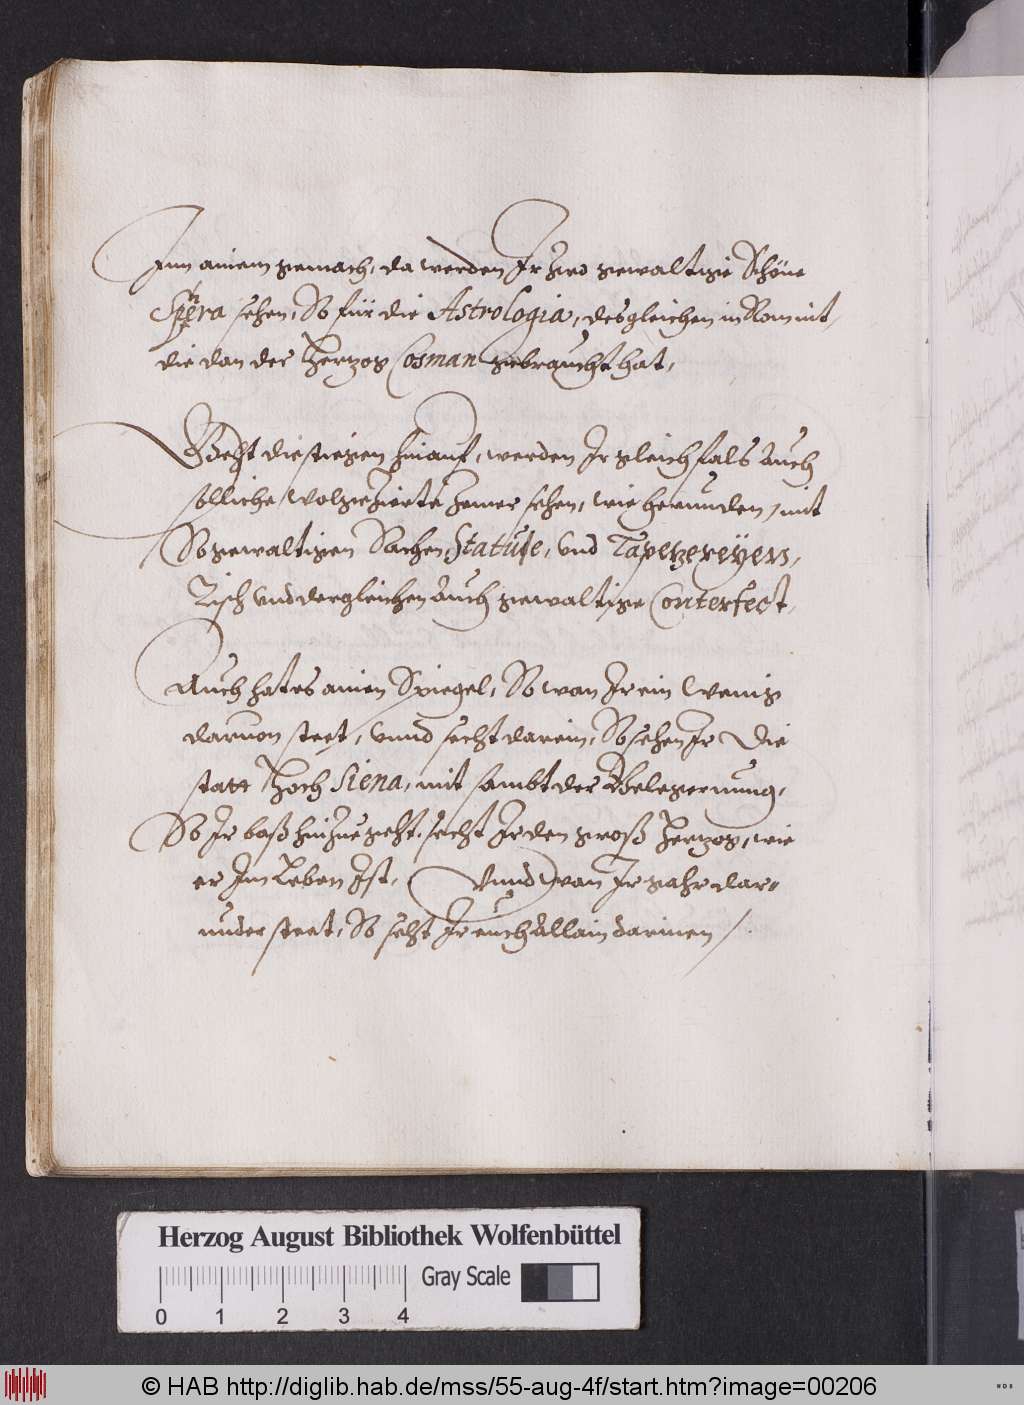 Inn ainem gemach, da werden Ir zwo gewaltige Schöne
Sphera sehen, So für die Astrologia, desgleichen in Rom nit,
die dan der Hertzog Cosman gebraucht hat,
Geht die stiegen hinauf, werden Ir gleichfals auch
solliche wolgezierte zimer sehen, wie herunden, mit
So gewaltigen Sachen, Statuse, vnd Tapetzereÿen,
Tisch vnd dergleichen auch gewaltige Conterfect,
Auch hat es ainen Spiegel, So wan Ir ein wenig
daruon steet, vnnd secht darein, So sehen Ir die
statt Hoch Siena, mit sambt der Belegernung,
So Ir baß hinzue geht, secht Ir den groß Hertzog, wie
er Im Leben Ist, Vnnd wan Ir gahr dar=
under steet, So secht Ir euch allain darinen /.
Herzog August Bibliothek Wolfenbüttel
Gray Scale
0 1 2 3 4
© HAB http://diglib.hab.de/mss/55-aug-4f/start.htm?image=00206